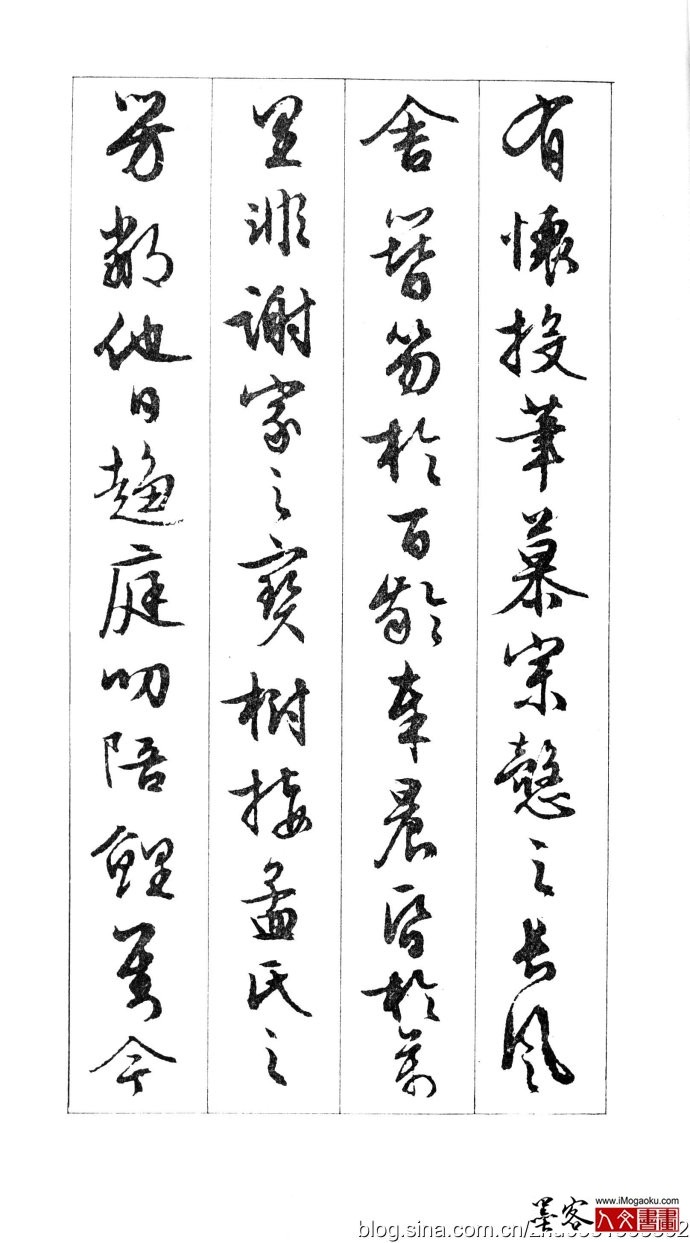 有懷投筆慕宗慤之長風
舍簪笏於百齡奉晨昏於萬
里非謝家之寶樹接孟氏之
芳鄰他日趨庭叨陪鯉對今
www.iMogaoku.com
墨客
人文書畫
blog.sina.com.cn/